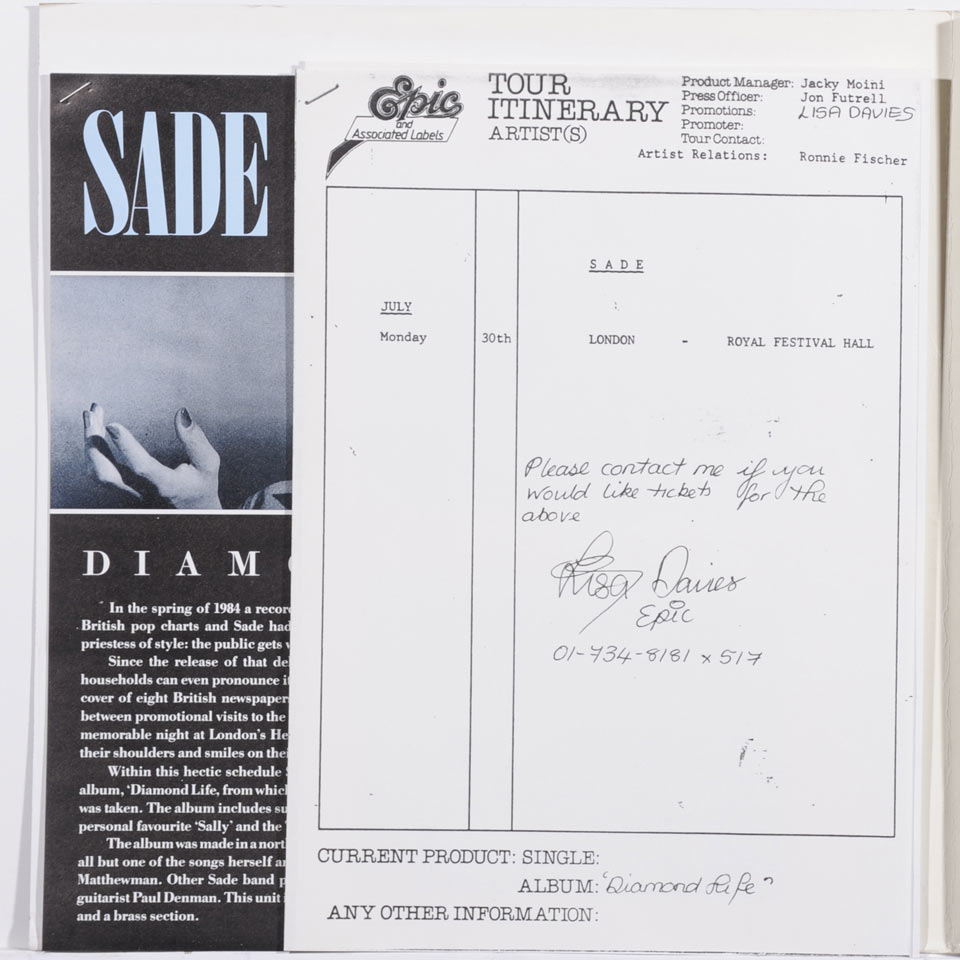 SADE
DIAM
In the spring of 1984 a recor
British pop charts and Sade had
priestess of style: the public gets
Since the release of that de
households can even pronounce it
cover of eight British newspaper
between promotional visits to the
memorable night at London's He
their shoulders and smiles on thei
Within this hectic schedule
album, 'Diamond Life, from whic
was taken. The album includes su
personal favourite 'Sally' and the
The album was made in a nort
all but one of the songs herself a
Matthewman. Other Sade band p
guitarist Paul Denman. This unit i
and a brass section.
Epic
and
Associated Labels
TOUR
ITINERARY
ARTIST(S)
Product Manager: Jacky Moini
Press Officer: Jon Futrell
Promotions: LISA DAVIES
Promoter:
Tour Contact:
Artist Relations: Ronnie Fischer
SADE
JULY
Monday 30th LONDON - ROYAL FESTIVAL HALL
Please contact me if you
would like tickets for the
above
Lisa Davies
Epic
01-734-8181 x 517
CURRENT PRODUCT: SINGLE:
ALBUM: 'Diamond Life"
ANY OTHER INFORMATION: